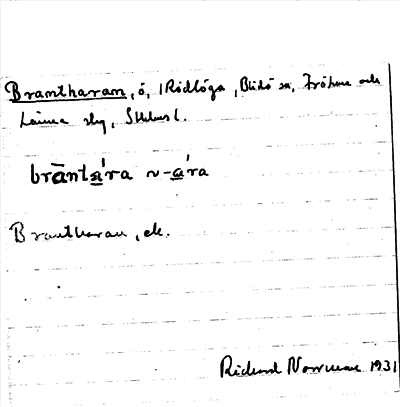 Brantharam, ö, i Rödlöga, Blidö sn, Frötuna och
Länna slg, Sthlms l.
brānta̲´ra ~ -a̲´ra
Brantharan, ek.
Rickard Norrman 1931